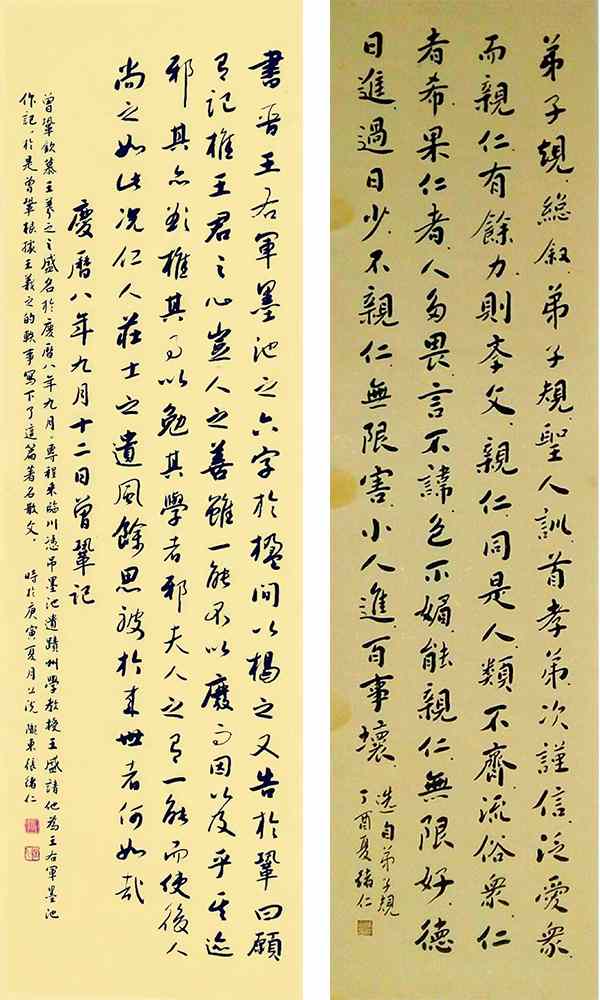 書晉王右軍墨池之六字於楹間以揭之又告於鞏曰願
有記推王君之心豈人之善雖一能不以廢而因以及乎其迹
邪其亦欲推其事以勉其學者邪夫人之有一能而使後人
尚之如此況仁人莊士之遺風餘思被於來世者何如哉
慶曆八年九月十二日曾鞏記
曾鞏欽慕王羲之之盛名於慶曆八年九月.專程來臨川憑吊墨池遺蹟州學教授王盛請他為王右軍墨池
作記.於是曾鞏根據王羲之的軼事寫下了這篇著名散文. 時於庚寅夏月上浣 東張緒仁
弟子規.總叙.弟子規.聖人訓.首孝弟.次謹信.泛愛衆.
而親仁.有餘力.則孝父.親仁.同是人.類不齊.流俗衆.仁
者希.果仁者.人多畏.言不諱.色不媚.能親仁.無限好.德
日進.過日少.不親仁.無限害.小人進.百事壞.
選自弟子規
丁酉夏緒仁